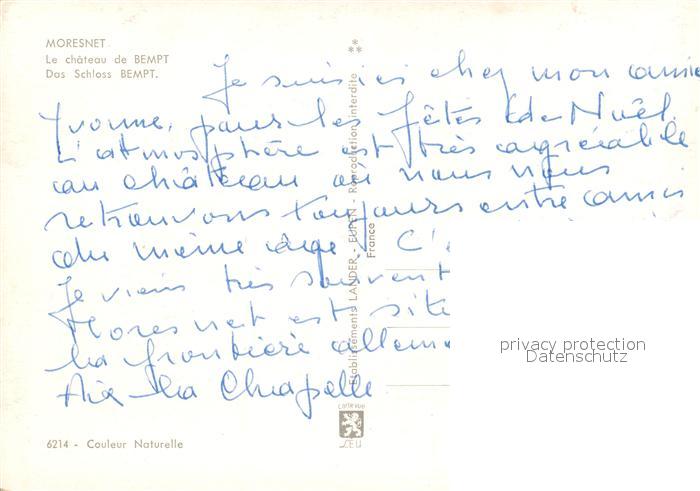 MORESNET.
Le château de BEMPT
Das Schloss BEMPT.
Je suis ici chez mon amie
Yvonne, pour les fêtes de Noël.
L'atmosphère est très agréable
au château où nous nous
retrouvons toujours entre amis
du même âge. C'
Je viens très souvent
Moresnet est sit
la frontière allema
Aix la Chapelle
Etablissements LANDER - EUPEN - Reproduction interdite
France
privacy protection
Datenschutz
CARTE VUE
LEU
6214 - Couleur Naturelle